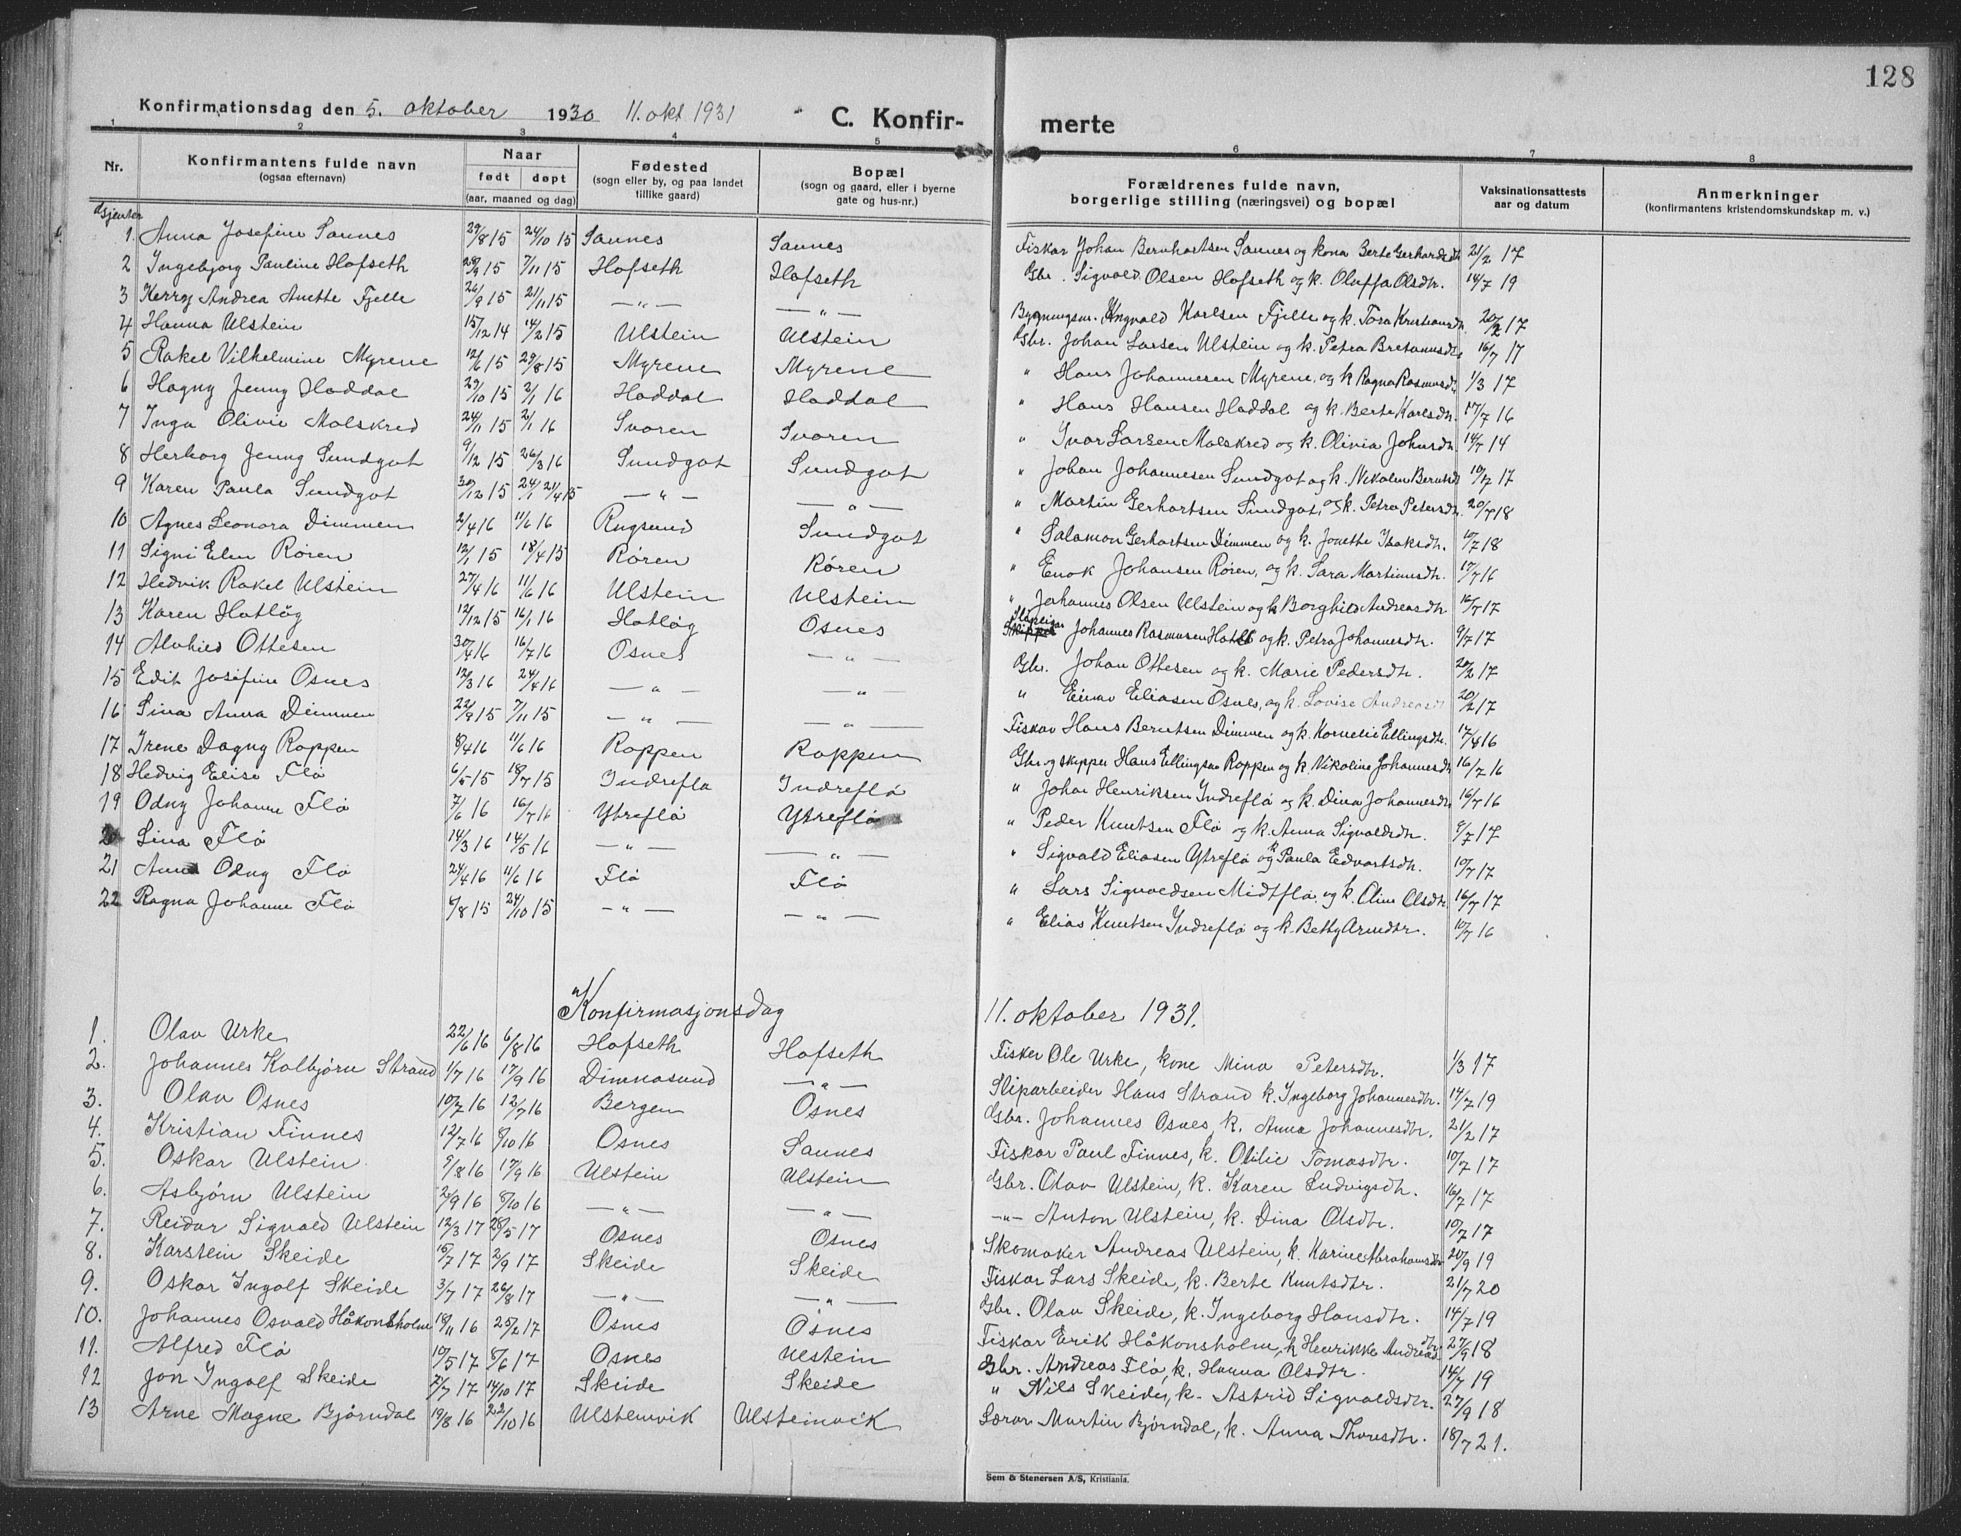 128
Konfirmationsdag den 5. oktober 1930 11. okt 1931 C. Konfir- merte
1 2 3 4 5 6 7 8
Nr. Konfirmantens fulde navn (ogsaa efternavn) Naar født døpt (aar, maaned og dag) Fødested (sogn eller by, og paa landet tillike gaard) Bopæl (sogn og gaard, eller i byerne gate og hus-nr.) Forældrenes fulde navn, borgerlige stilling (næringsvei) og bopæl Vaksinationsattests aar og datum Anmerkninger (konfirmantens kristendomskundskap m. v.)
Gjenter
1. Anna Josefine Sannes 29/8 15 24/10 15 Sannes Sannes Fiskar Johan Bernhartsen Sannes og kona Berte Gerhardsdtr 21/2 17
2 Ingebjorg Pauline Hofseth 28/9 15 7/11 15 Hofseth Hofseth Gbr. Sigvald Olsen Hofseth og k. Oluffa Olsdtr. 14/7 19
3 Andrea Anette Fjelle 26/9 15 21/11 15 — " — — " — Bygningsm. Yngvald Karlsen Fjelle og k. Tora Kristiansdtr. 20/2 17
4 Hanna Ulstein 15/12 14 14/2 15 Ulstein Ulstein Gbr. Johan Larsen Ulstein og k. Petra 16/7 17
5 Rakel Vilhelmine Myrene 12/6 15 29/8 15 Myrene Myrene " Hans Johannesen Myrene, og k Ragna Rasmusdtr 1/3 17
6 Hagny Jenny Haddal 29/10 15 2/1 16 Haddal Haddal " Hans Hansen Haddal og k. Berte Karlsdtr. 17/7 16
7 Inga Olivie Molskred 24/11 15 2/1 16 Svoren Svoren " Ivar Larsen Molskred og k. Olivia Johnsdtr 14/7 14
8 Herborg Jenny Sundgot 9/12 15 26/3 16 Sundgot Sundgot " Johan Johannesen Sundgot og k. Nikoline Berntsdtr 10/7 17
9 Karen Paula Sundgot 30/12 15 24/1 21/4 15 — " — — " — " Martin Gerhartsen Sundgot, og k. Petra Petersdtr. 20/7 18
10 Agnes Leonora Dimmen 2/4 16 11/6 16 Rugsund Sundgot " Salamon Gerhartsen Dimmen og k. Jonette Isaksdtr. 10/7 18
11 Signi Elen Røren 12/1 15 18/4 15 Røren Røren " Enok Johansen Røren, og k. Sara Martinusdtr. 17/7 16
12 Hedvik Rakel Ulstein 27/4 16 11/6 16 Ulstein Ulstein " Johannes Olsen Ulstein og k Borghild Andreasdtr 16/7 17
13 Karen Hatløg 12/12 15 16/1 16 Hatløg Osnes Skipper Johannes Rasmusen og k. Petra Johannesdtr. 9/7 17
14 Alvhild Ottesen 30/4 16 16/7 16 Osnes — " — Gbr. Johan Ottesen og k. Marie Pedersdtr. 20/2 17
15 Edit Josefine Osnes 12/3 16 24/4 16 — " — — " — " Einar Eliasen Osnes, og k. Lovise Andreasdt 20/2 17
16 Sina Anna Dimmen 22/9 15 7/11 15 — " — — " — Fiskar Hans Berntsen Dimmen og k. Kornelie Ellingsdtr. 17/4 16
17 Irene Dagny Roppen 8/4 16 11/6 16 Roppen Roppen Gbr og skipper Hans Ellingsen Roppen og k. Nikoline Johannesdtr 16/7 16
18 Hedvig Elise Flø 6/5 15 18/7 15 Indreflø Indreflø " Johan Henriksen Indreflø og k. Dina Johannesdtr 16/7 16
19 Odny Johanne Flø 7/6 16 16/7 16 Ytreflø Ytreflø " Peder Knutsen Flø og k. Anna Sigvaldsdtr. 9/7 17
20 Sina Flø 14/3 16 14/5 16 — " — — " — " Sigvald Eliasen Ytreflø og k Paula Edvartsdtr. 10/7 17
21 Anna Odny Flø 24/4 16 11/6 16 Flø Flø " Lars Sigvaldsen Midtflø og k. Oline Olsdtr. 16/7 17
22 Ragna Johanne Flø 8/8 15 24/10 15 — " — — " — " Elias Knutsen Indreflø og k. Betty Arendtr. 10/7 16
Konfirmasjonsdag 11. oktober 1931.
1. Olav Urke 22/6 16 6/8 16 Hofseth Hofseth Fisker Ole Urke, kone Mina Petersdtr. 1/3 17
2. Johannes Kolbjørn Strand 1/7 16 17/9 16 Dimnasund — " — Sliparbeider Hans Strand k. Ingeborg Johannesdtr. 14/7 19
3. Olav Osnes 10/7 16 12/7 16 Bergen Osnes Gbr. Johannes Osnes, k. Anna Johannesdtr. 21/2 17
4. Kristian Finnes 12/7 16 8/10 16 Osnes Sannes Fiskar Paul Finnes, k. Otilie Tomasdtr. 10/7 17
5. Oskar Ulstein 9/8 16 17/9 16 Ulstein Ulstein Gbr. Olav Ulstein, k. Karen Ludvigsdtr. 16/7 17
6. Asbjørn Ulstein 2/9 16 8/10 16 — " — — " — — " — Anton Ulstein, k. Dina Olsdtr. 10/7 17
7. Reidar Sigvald Ulstein 12/3 17 28/5 17 Osnes Osnes Skomaker Andreas Ulstein, k. Karine Abrahamsdtr 20/9 19
8. Karstein Skeide 15/7 17 2/9 17 Skeide Skeide Fiskar Lars Skeide, k. Berte Knutsdtr. 21/7 20
9. Oskar Ingolf Skeide 3/7 17 26/8 17 — " — — " — Gbr. Olav Skeide, k. Ingeborg Hansdtr. 14/7 19
10. Johannes Osvald Håkonsholm 19/11 16 25/2 17 Osnes Osnes Fiskar Erik Håkonsholm, k Henrikke Andreasdtr 27/9 18
11. Alfred Flø 10/5 17 8/6 17 Osnes Ulstein Gbr. Andreas Flø, k. Hanna Olsdtr. 14/7 19
12 Jon Ingolf Skeide 7/7 17 14/10 17 Skeide Skeide " Nils Skeide, k. Astrid Sigvaldsdtr. 27/9 18
13 Arne Magne Bjørndal 19/8 16 22/10 16 Ulsteinvik Ulsteinvik Lærar Martin Bjørndal, k. Anna Thoresdtr. 18/7 21.
Sem & Stenersen A/S, Kristiania.